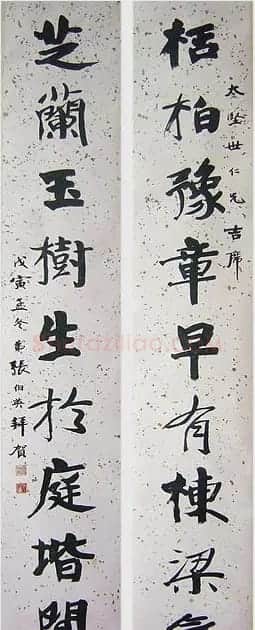 栝柏豫章早有棟梁
世仁兄吉席
芝蘭玉樹生於庭堦間
戊寅孟冬弟張伯英拜賀